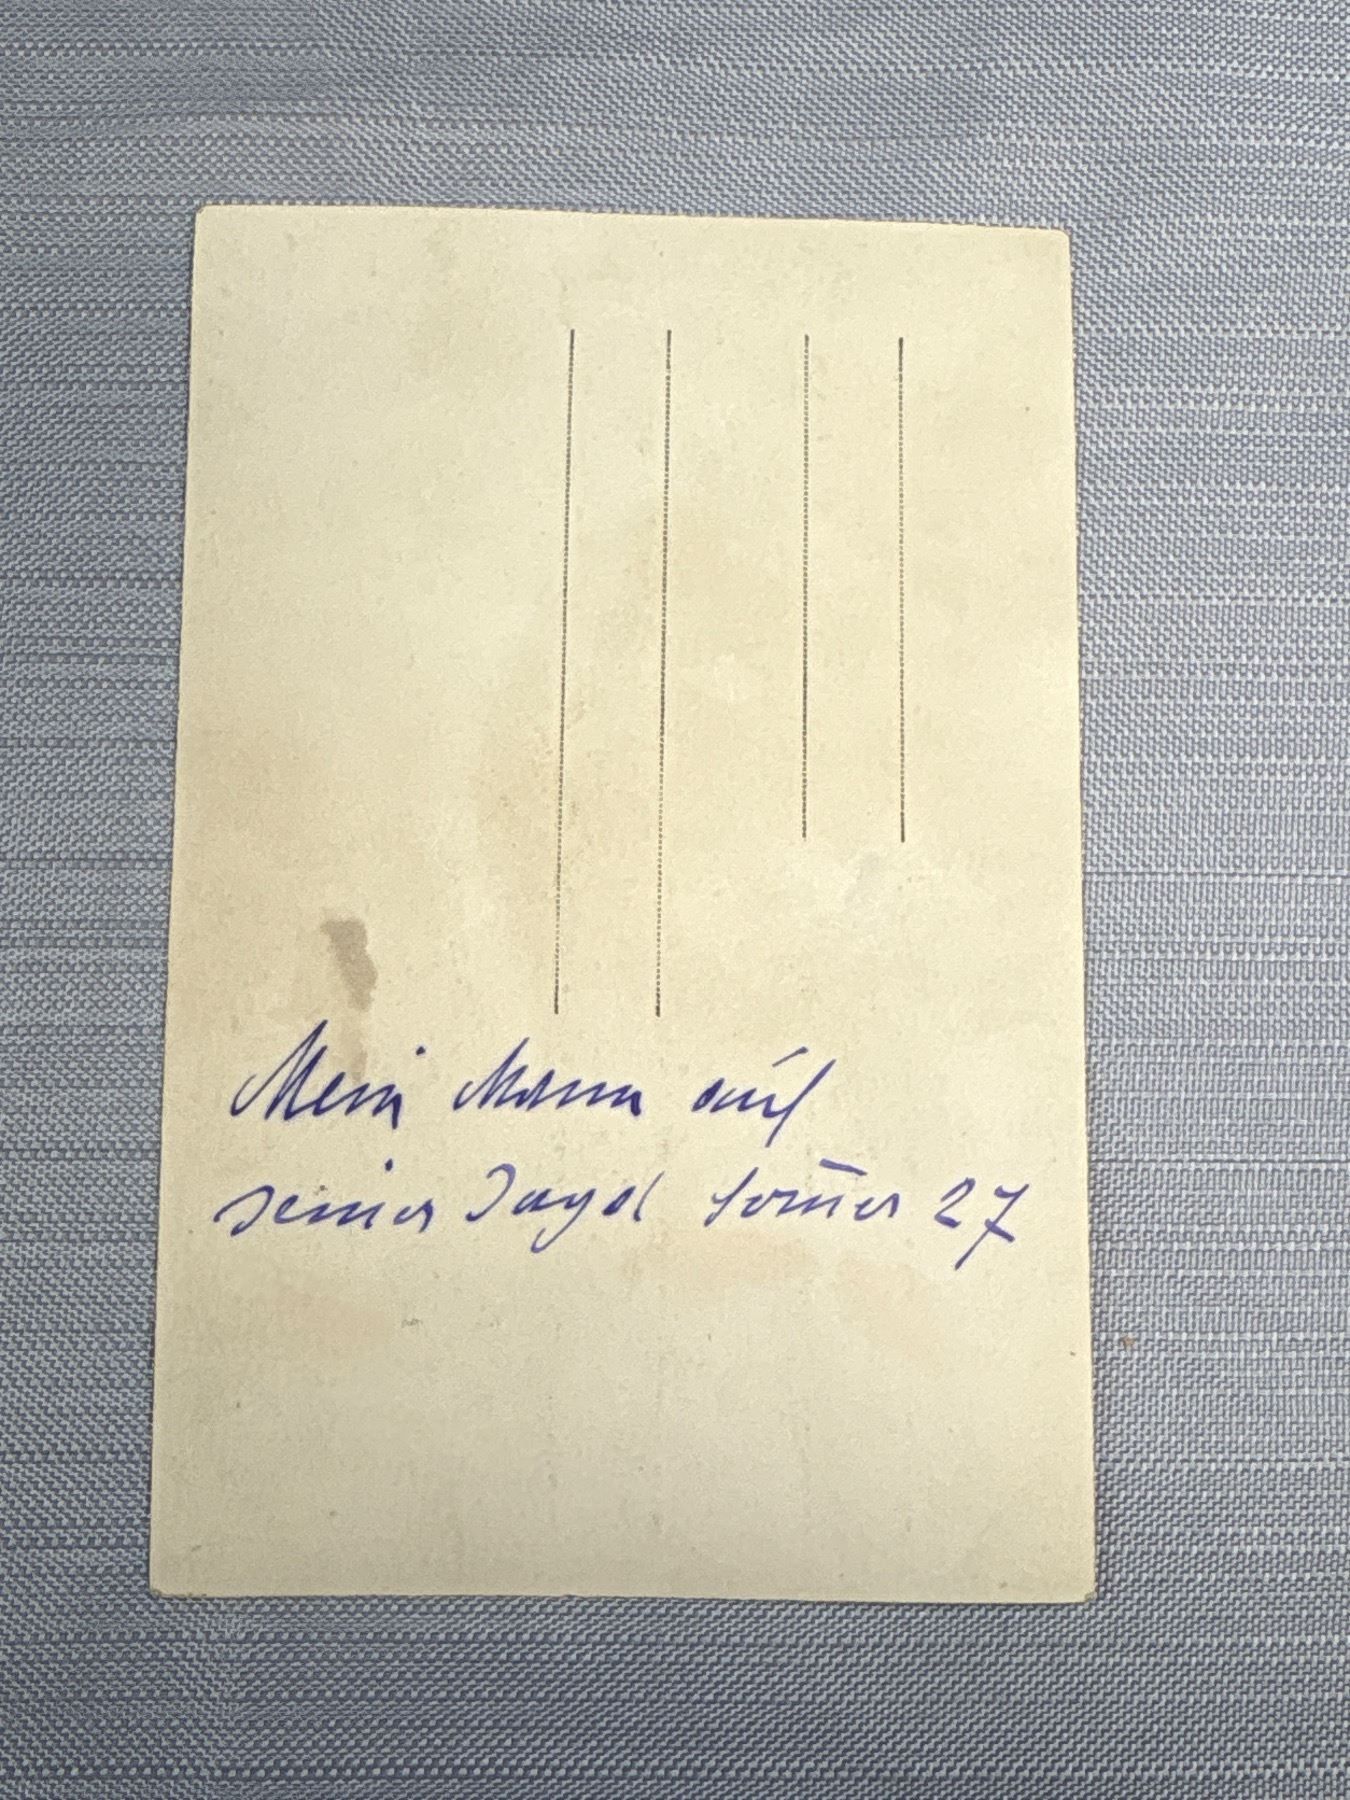 Mein Mann auf
seiner Jagd Som̅er 27